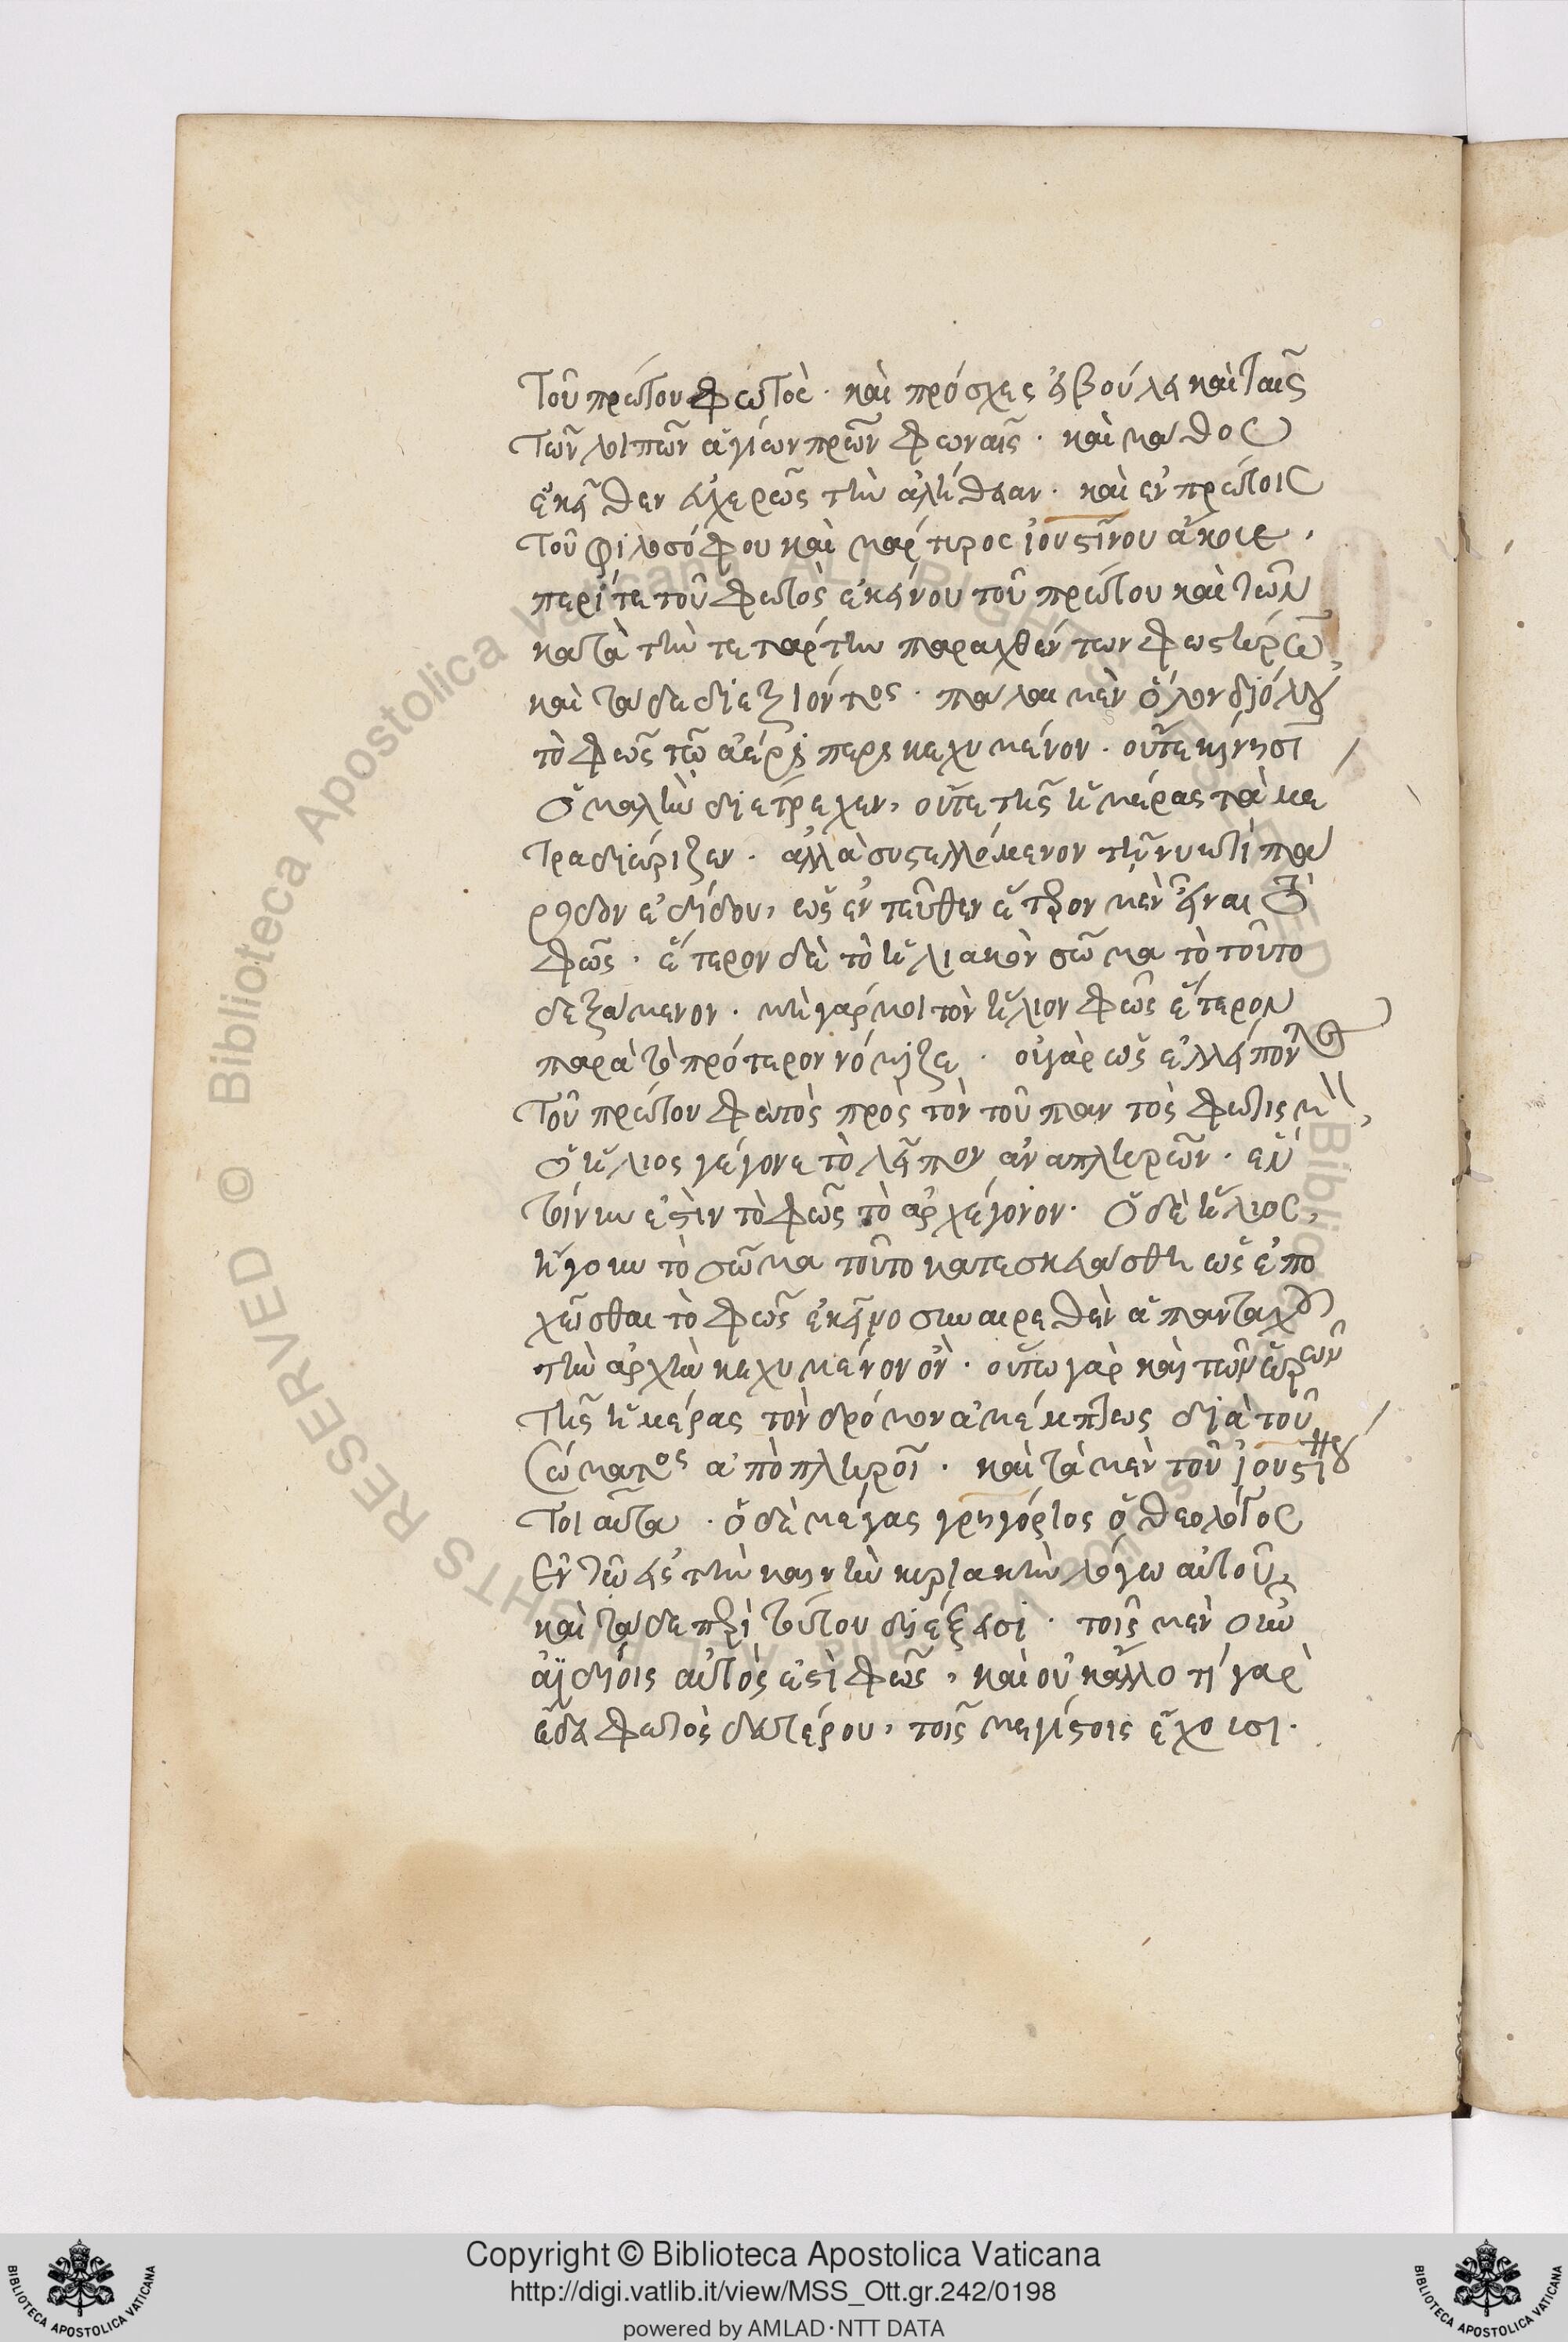 τοῦ πρώτου φωτός· καὶ πρόσχες εἰ βούλει καὶ ταῖς
τῶν λοιπῶν ἁγίων πρῶν φωναῖς· καὶ μάθοις
ἐκεῖθεν εἰλικρινῶς τὴν ἀλήθειαν· καὶ ἐν πρώτοις
τοῦ φιλοσόφου καὶ μάρτυρος ἰουστίνου ἄκουε,
περί τε τοῦ φωτὸς ἐκείνου τοῦ πρώτου καὶ τῶν
κατὰ τὴν τετάρτην παραχθέντων φωστήρων,
καὶ τάδε διεξιόντος· πάλαι μὲν ὅλον δι' ὅλου
τὸ φῶς τῷ ἀέρι περικεχυμένον· οὔτε κίνησιν
ὁμαλὴν διέτρεχεν, οὔτε τῆς ἡμέρας τὰ με
τρα διώριζεν· ἀλλὰ συστελλόμενον τῇ νυκτὶ πά
ροδον ἐδίδου, ὡς ἐντεῦθεν ἕτερον μὲν εἶναι τὸ
φῶς· ἕτερον δὲ τὸ ἡλιακὸν σῶμα τὸ τοῦτο
δεξάμενον· μὴ γάρ μοι τὸν ἥλιον φῶς ἕτερον
παρὰ τὸ πρότερον νόμιζε· οὐ γὰρ ὡς ἐλλείποντος
τοῦ πρώτου φωτὸς πρὸς τὸν τοῦ παντὸς φωτισμὸν,
ὁ ἥλιος γέγονε τὸ λεῖπον ἀναπληρῶν· ἀλλὰ
τοίνυν ἐστὶν τὸ φῶς τὸ ἀρχέγονον· ὁ δὲ ἥλιος,
ἤγουν τὸ σῶμα τοῦτο κατεσκευάσθη ὡς ἐπο
χεῖσθαι τὸ φῶς ἐκεῖνο συναιρεθὲν ἁπανταχοῦ
τὴν ἀρχὴν κεχυμένον ὂν· οὕτω γὰρ καὶ τῶν ὡρῶν
τῆς ἡμέρας τὸν δρόμον ἀμέμπτως διὰ τοῦ
σώματος ἀποπληροῖ· καὶ τὰ μὲν τοῦ ἰουστίνου
τοιαῦτα· ὁ δὲ μέγας γρηγόριος ὁ θεολόγος
ἐν τῷ εἰς τὴν καινὴν κυριακὴν λόγω αὐτοῦ,
καὶ τάδε περὶ τούτου διέξεισι· τοῖς μὲν οὖν
ἀϊδίοις αὐτὸς ἐστὶ φῶς, καὶ οὐκ ἄλλο τί γὰρ
ἔδει φωτὸς δευτέρου, τοῖς μέγιστοις ἔχουσι·
Copyright © Biblioteca Apostolica Vaticana
http://digi.vatlib.it/view/MSS_Ott.gr.242/0198
powered by AMLAD·NTT DATA